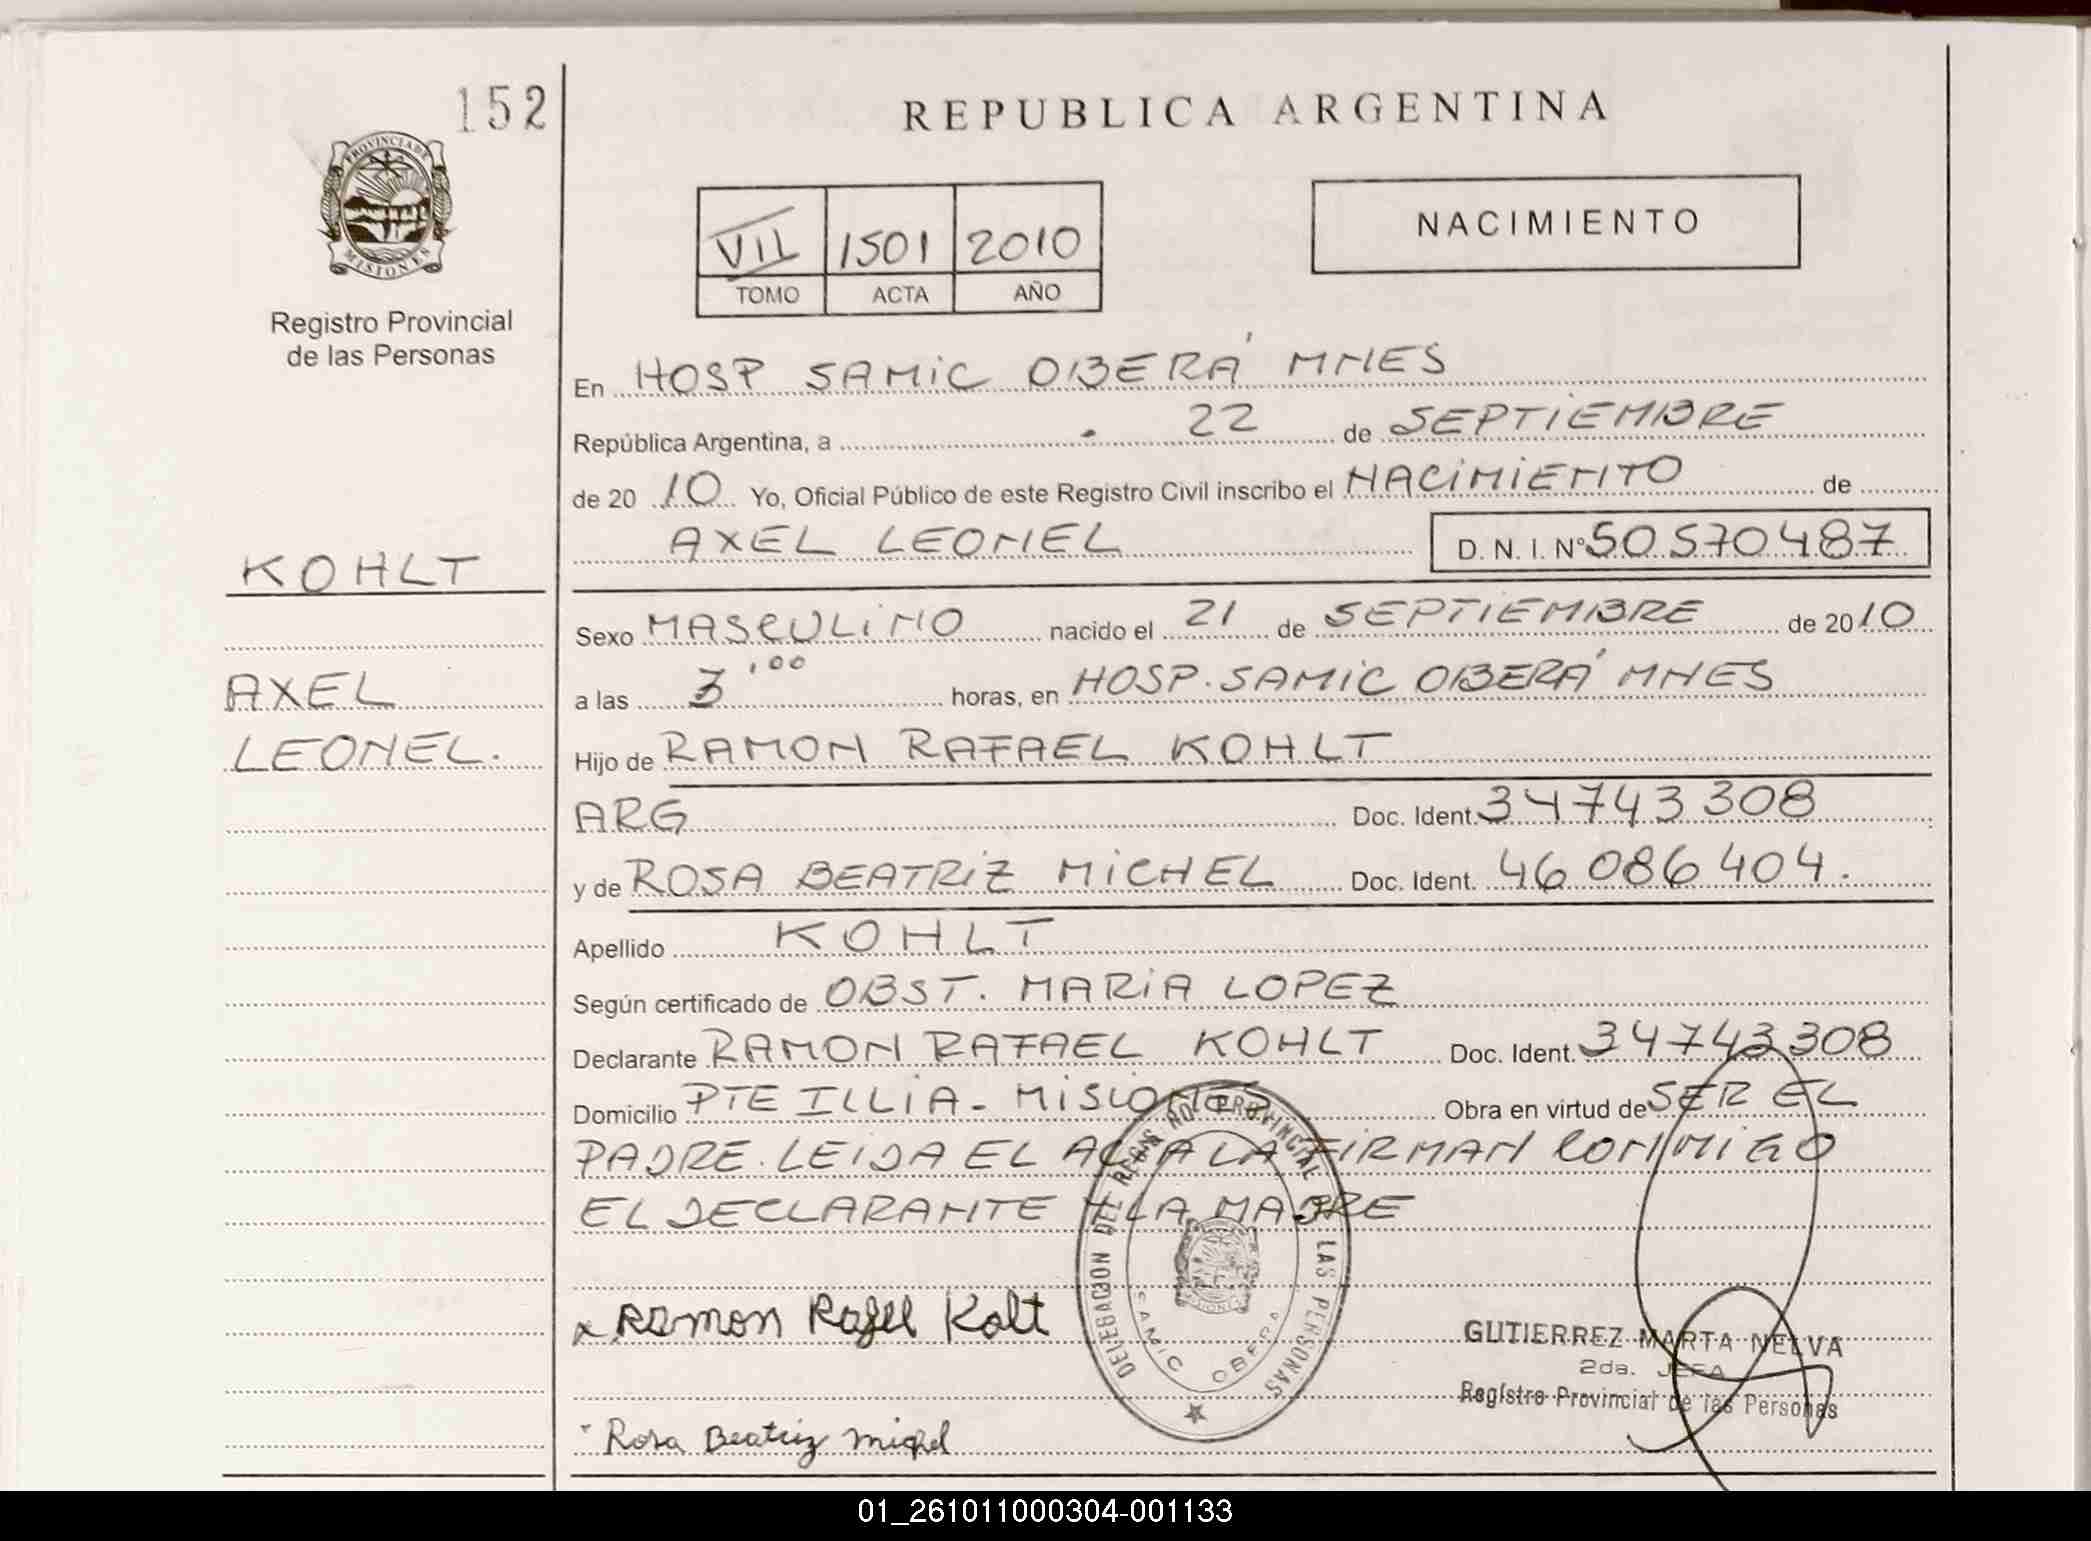 152
PROVINCIA DE
MISIONES
Registro Provincial
de las Personas
KOHLT
AXEL
LEONEL.
REPUBLICA ARGENTINA
VII 1501 2010
TOMO ACTA AÑO
NACIMIENTO
En HOSP SAMIC OBERÁ MNES
República Argentina, a 22 de SEPTIEMBRE
de 20 10 Yo, Oficial Público de este Registro Civil inscribo el NACIMIENTO de
AXEL LEONEL D. N. I. Nº 50570487
Sexo MASCULINO nacido el 21 de SEPTIEMBRE de 2010
a las 3,00 horas, en HOSP. SAMIC OBERÁ MNES
Hijo de RAMON RAFAEL KOHLT
ARG Doc. Ident. 34743308
y de ROSA BEATRIZ MICHEL Doc. Ident. 46086404.
Apellido KOHLT
Según certificado de OBST. MARIA LOPEZ
Declarante RAMON RAFAEL KOHLT Doc. Ident. 34743308
Domicilio PTE ILLIA - MISIONES Obra en virtud de SER EL
PADRE. LEIDA EL ACTA LA FIRMAN CONMIGO
EL DECLARANTE Y LA MADRE
x Ramon Rafel Kolt
Rosa Beatriz miqel
DELEGACION DEL REGISTRO PROVINCIAL DE LAS PERSONAS
SAMIC OBERA
GUTIERREZ MARTA NELVA
2da. JEFA
Registro Provincial de las Personas
01_261011000304-001133